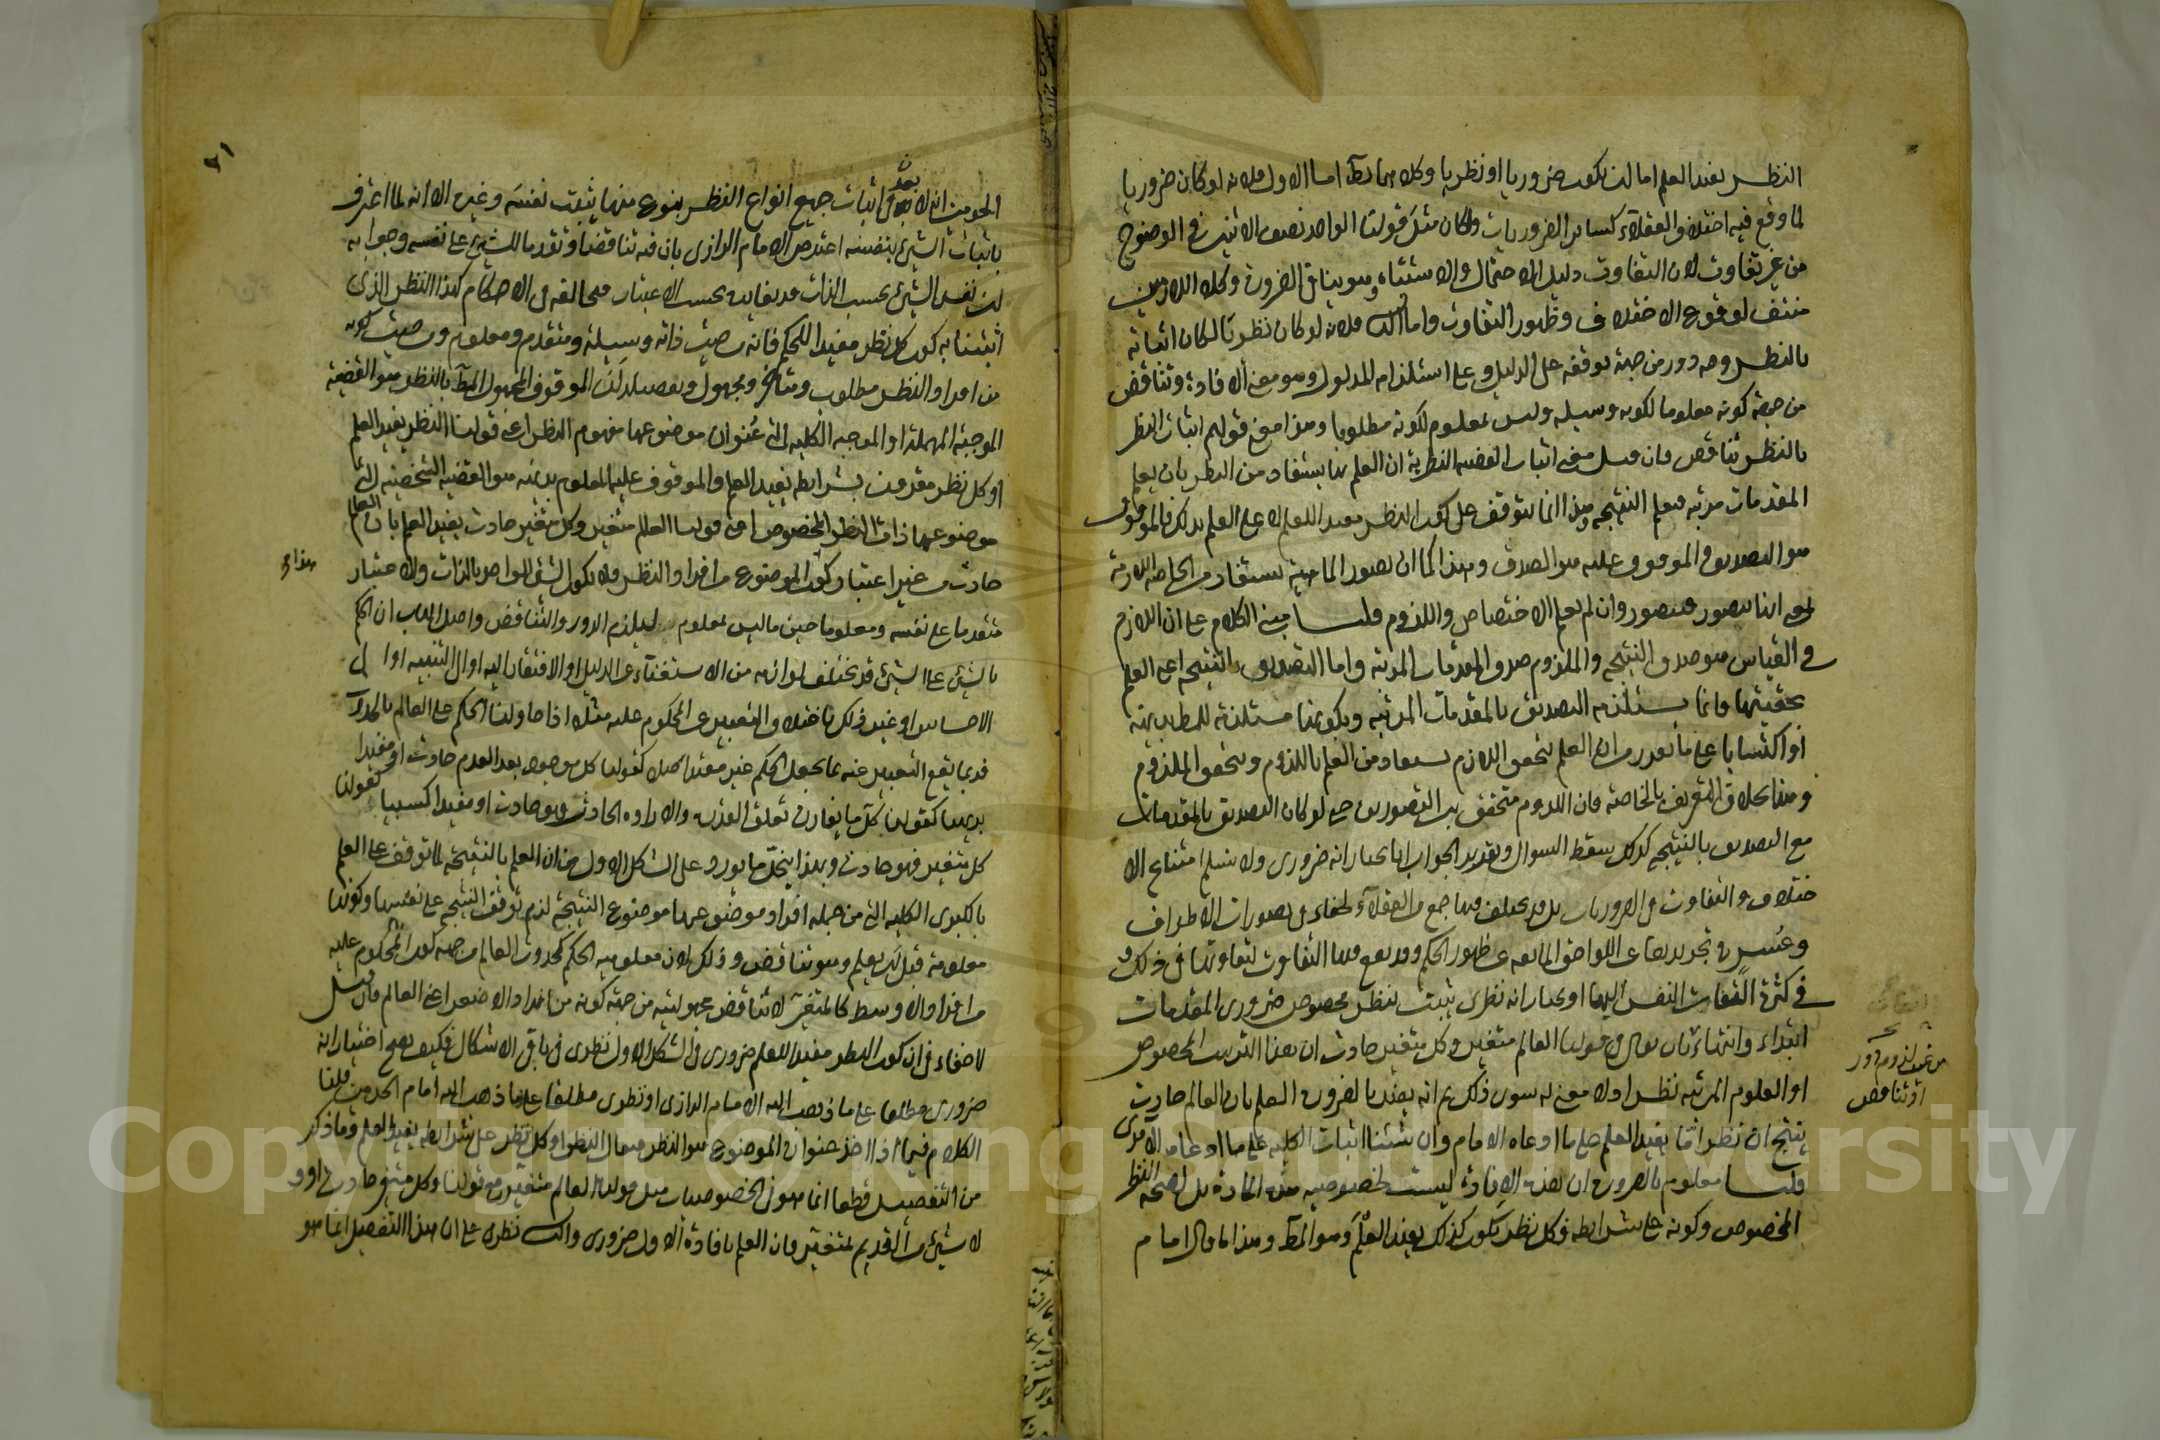 النظر يفيد العلم اما ان يكون ضروريا او نظريا وكلاهما بط اما الاول فلانه لو كان ضروريا
لما وقع فيه اختلاف العقلاء كسائر الضروريات ولكان مثل قولنا الواحد نصف الاثنين في الوضوح
من غير تفاوت لان التفاوت دليل الاحتمال والاشتباه وهو ينافي الضرورة وكلا اللازمين
منتف لوقوع الاختلاف وظهور التفاوت واما الثاني فلانه لو كان نظريا لكان اثباته
بالنظر وفيه دور من جهة توقفه على الدليل وعلى استلزامه المدلول وهو معنى الافادة وتناقض
من جهة كونه معلوما لكونه وسيلة وليس بمعلوم لكونه مطلوبا وهذا معنى قولهم اثبات النظر
بالنظر تناقض فان قيل معنى اثبات القضية النظرية ان العلم بها يستفاد من النظر بان يعلم
المقدمات مرتبة فيعلم النتيجة وهذا انما يتوقف على كون النظر مفيدا للعلم لا على العلم بذلك فالموقوف
هو التصديق والموقوف عليه هو الصدق وهذا كما ان تصور الماهية يستفاد من الخاصة اللازمة
بمعنى انها تتصور فتتصور وان لم يعلم الاختصاص واللزوم قلنا مبنى الكلام على ان اللازم
في القياس هو صدق النتيجة والملزوم صدق المقدمات المرتبة واما التصديق بالنتيجة اعني العلم
بحقيتها فانما يستلزمه التصديق بالمقدمات المرتبة وبكونها مستلزمة للمطلوب بديهة
او اكتسابا على ما تقرر من ان العلم بتحقق اللازم يستفاد من العلم باللزوم وبتحقق الملزوم
وهذا بخلاف التعريف بالخاصة فان اللزوم متحقق بين التصورين حتى لو كان التصديق بالمقدمات
مع التصديق بالنتيجة كذلك سقط السؤال وتقرير الجواب انا نختار انه ضروري ولا نسلم امتناع الا
ختلاف والتفاوت في الضروريات بل قد يختلف فيها جمع من العقلاء لخفاء في تصورات الاطراف
وعسر في تجريدها عن اللواحق المانعة عن ظهور الحكم وقد يقع فيها التفاوت لتفاوتها في ذلك و
في كثرة التفات النفس اليها او نختار انه نظري يثبت بنظر مخصوص ضروري المقدمات
ابتداء وانتهاء بان يقال في قولنا العالم متغير وكل متغير حادث ان هذا الترتيب المخصوص
او العلوم المرتبة نظر اذ لا معنى له سوى ذلك ثم انه يفيد بالضرورة العلم بان العالم حادث
ينتج ان نظرا ما يفيد العلم على ما ادعاه الامام وان شئنا اثبات الكلية على ما ادعاه الآمدي
قلنا معلوم بالضرورة ان هذه الافادة ليست لخصوصية هذه المادة بل لصحة النظر
المخصوص وكونه على شرائطه فكل نظر يكون كذلك يفيد العلم وهو المط وهذا ما قال امام
من غير لزوم دور
او تناقض
٢١
الحرمين انه لا بعد في اثبات جميع انواع النظر بنوع منها يثبت نفسه وغيره الا انه لما اعترف
باثبات الشيء بنفسه اعترض الامام الرازي بان فيه تناقضا وتقدما للشيء على نفسه وجوابه
ان نفس الشيء بحسب الذات قد يغايره بحسب الاعتبار فيخالفه في الاحكام كهذا النظر الذي
اثبتنا به كون كل نظر مفيدا للحكم فانه من حيث ذاته وسيلة ومتقدم ومعلوم ومن حيث كونه
من افراد النظر مطلوب ومتاخر ومجهول وتفصيله ان الموقوف المجهول المط بالنظر هو القضية
الموجبة المهملة او الموجبة الكلية التي عنوان موضوعها مفهوم النظر اعني قولنا النظر يفيد العلم
او كل نظر مقرون بشرائطه يفيد العلم والموقوف عليه المعلوم بديهة هو القضية الشخصية التي
موضوعها ذات النظر المخصوص اعني قولنا العالم متغير وكل متغير حادث يفيد العلم بان العالم
حادث من غير اعتبار كون الموضوع من افراد النظر فلا يكون الشيء الواحد بالذات والاعتبار
متقدما على نفسه ومعلوما حين ما ليس بمعلوم ليلزم الدور والتناقض واصل الباب ان الحكم
بالشيء على الشيء قد يختلف لوازمه من الاستغناء عن الدليل او الافتقار اليه او الى التنبيه او الى
الاحساس او غير ذلك باختلاف التعبير عن المحكوم عليه مثلا اذا حاولنا الحكم على العالم بالحدوث
فربما يقع التعبير عنه بما يجعل الحكم غير مفيد اصلا كقولنا كل موجود بعد العدم حادث او مفيدا
بديهيا كقولنا كل ما يقارن تعلق القدرة والارادة الحادث فهو حادث او مفيدا كسبيا كقولنا
كل متغير فهو حادث وبهذا ينحل ما يورد على الشكل الاول من ان العلم بالنتيجة لما توقف على العلم
بالكبرى الكلية التي من جملة افراد موضوعها موضوع النتيجة لزم توقف النتيجة على نفسها وكونها
معلومة قبل ان يعلم وهو تناقض وذلك لان معلومية الحكم كحدوث العالم من جهة كون المحكوم عليه
من افراد الاوسط كالمتغير لا تناقض مجهوليته من جهة كونه من افراد الاصغر اعني العالم فان قيل
لا خفاء في ان كون النظر مفيدا للعلم ضروري في الشكل الاول نظري في باقي الاشكال فكيف يصح اختيار انه
ضروري مطلقا على ما ذهب اليه الامام الرازي او نظري مطلقا على ما ذهب اليه امام الحرمين قلنا
الكلام فيما اذا اخذ عنوان الموضوع هو النظر فيقال النظر او كل نظر على شرائطه يفيد العلم وما ذكر
من التفصيل قطعا انما هو في الخصوصيات مثل قولنا العالم متغير مع قولنا وكل متغير حادث او و
لا شيء من القديم بمتغير فان العلم بافادة الاول ضروري والثاني نظري على ان هذا التفصيل انما هو